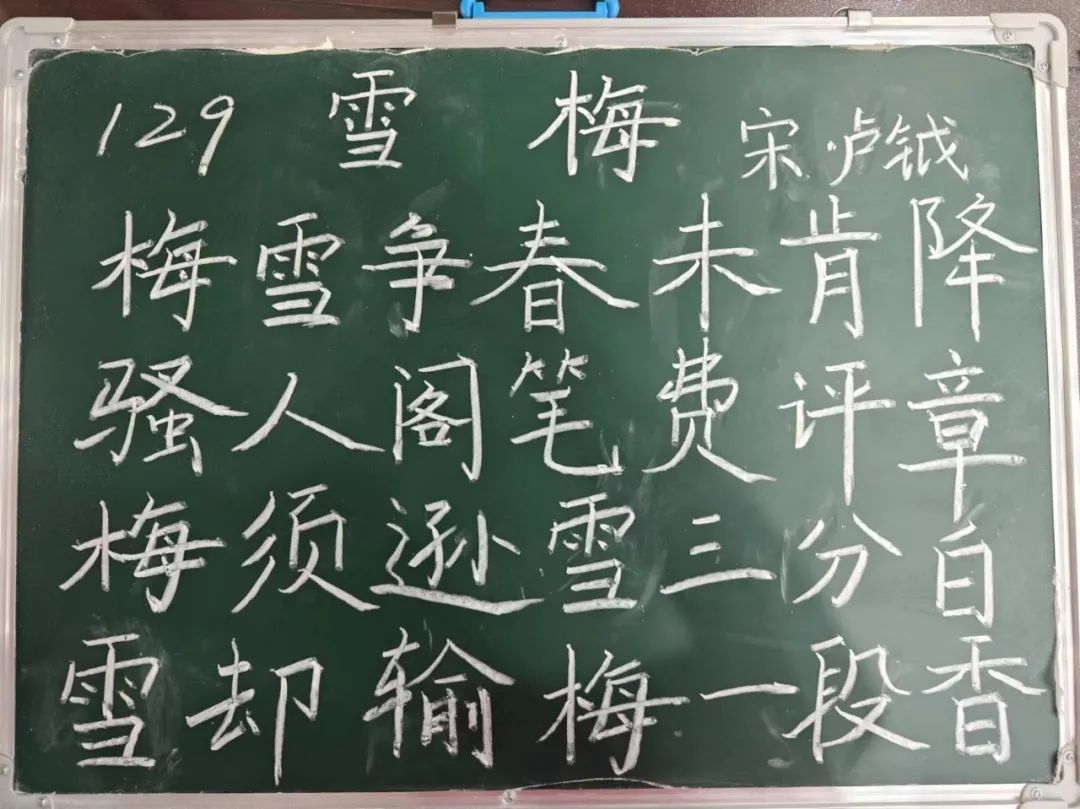 129 雪梅 宋·卢钺
梅雪争春未肯降
骚人阁笔费评章
梅须逊雪三分白
雪却输梅一段香